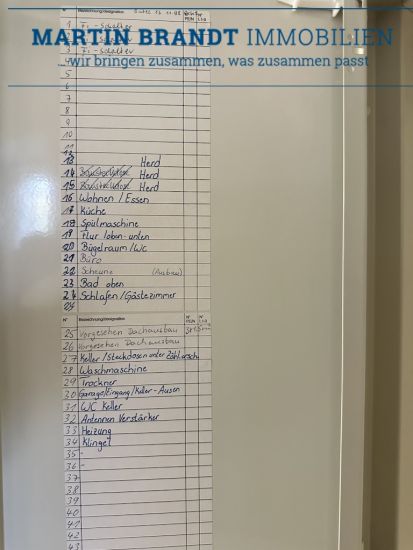 N° Bezeichnung/designation
1 Fi-Schalter
2 Fi-Schalter
3 Fi-Schalter
MARTIN BRANDT IMMOBILIEN
...wir bringen zusammen, was zusammen passt
5
6
7
8
9
10
11
12
13 Herd
14 Herd
15 Herd
16 Wohnen/Essen
17 Küche
18 Spülmaschine
19 Flur oben-unten
20 Bügelraum/WC
21 Büro
22 Scheune (Ausbau)
23 Bad oben
24 Schlafen/Gästezimmer
N° Bezeichnung/designation
25 Vorgesehen Dachausbau
26 Vorgesehen Dachausbau
27 Keller/Steckdosen unter Zählersch
28 Waschmaschine
29 Trockner
30 Garage/Eingang/Keller-Ausen
31 WC Keller
32 Antennen Verstärker
33 Heizung
34 Klingel
35 -
36 -
37
38
39
40
41
42
43